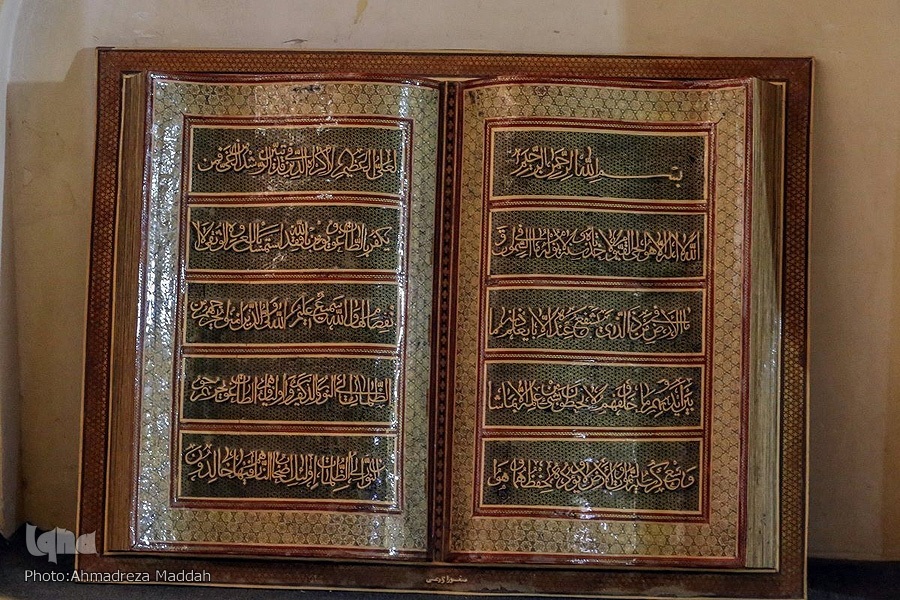 بسم الله الرحمن الرحيم
الله لا اله الا هو الحي القيوم لا تأخذه سنة ولا نوم له ما في السموات و
ما في الارض من ذا الذي يشفع عنده الا باذنه يعلم ما
بين ايديهم وما خلفهم ولا يحيطون بشيء من علمه الا بما شاء
وسع كرسيه السموات والارض ولا يؤده حفظهما وهو
العلي العظيم لا اكراه في الدين قد تبين الرشد من الغي فمن
يكفر بالطاغوت ويؤمن بالله فقد استمسك بالعروة الوثقى لا
انفصام لها والله سميع عليم الله ولي الذين امنوا يخرجهم من
الظلمات الى النور والذين كفروا اولياؤهم الطاغوت يخرجونهم
من النور الى الظلمات اولئك اصحاب النار هم فيها خالدون
iqna
Photo:Ahmadreza Maddah